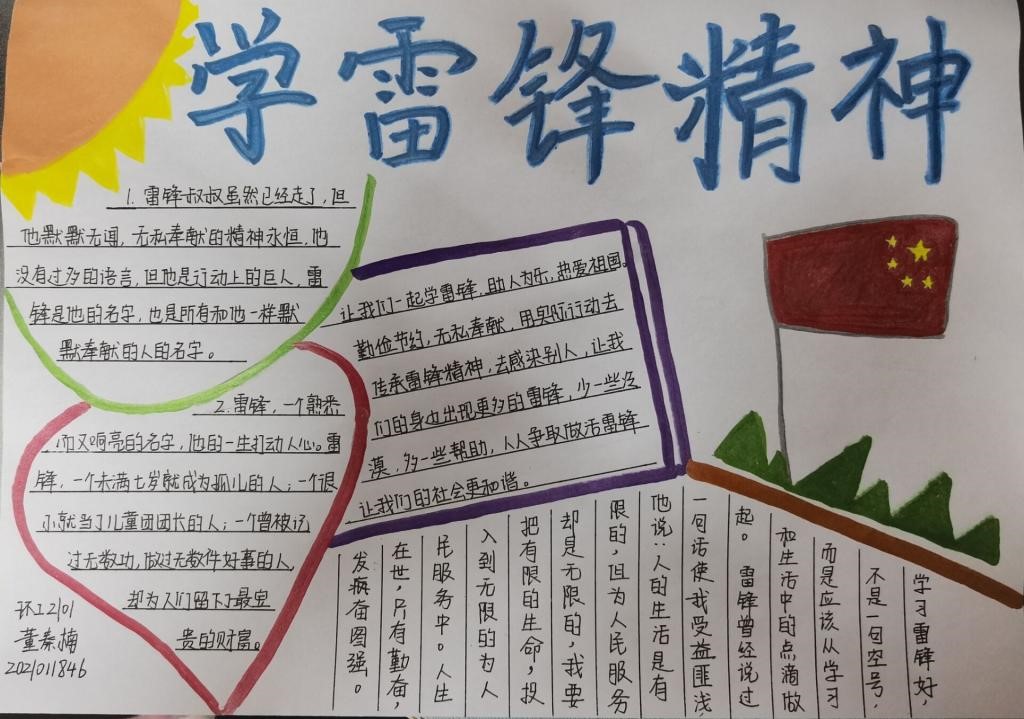 学雷锋精神
1. 雷锋叔叔虽然已经走了,但
他默默无闻,无私奉献的精神永恒,他
没有过多的语言,但他是行动上的巨人,雷
锋是他的名字,也是所有和他一样默
默奉献的人的名字。
2. 雷锋,一个熟悉
而又响亮的名字,他的一生打动人心。雷
锋,一个未满七岁就成为孤儿的人;一个很
小就当了儿童团团长的人;一个曾被记
过无数功,做过无数件好事的人,
却为人们留下了最宝
贵的财富。
环工2101
董秦楠
2021011846
让我们一起学雷锋,助人为乐,热爱祖国。
勤俭节约,无私奉献,用实际行动去
传承雷锋精神,去感染别人,让我
们的身边出现更多的雷锋,少一些冷
漠,多一些帮助,人人争取做活雷锋
让我们的社会更和谐。
学习雷锋好,
不是一句空号,
而是应该从学习
和生活中的点滴做
起。雷锋曾经说过
一句话使我受益匪浅,
他说:人的生活是有
限的,但为人民服务
却是无限的,我要
把有限的生命,投
入到无限的为人
民服务中。人生
在世,只有勤奋,
发痴奋图强。